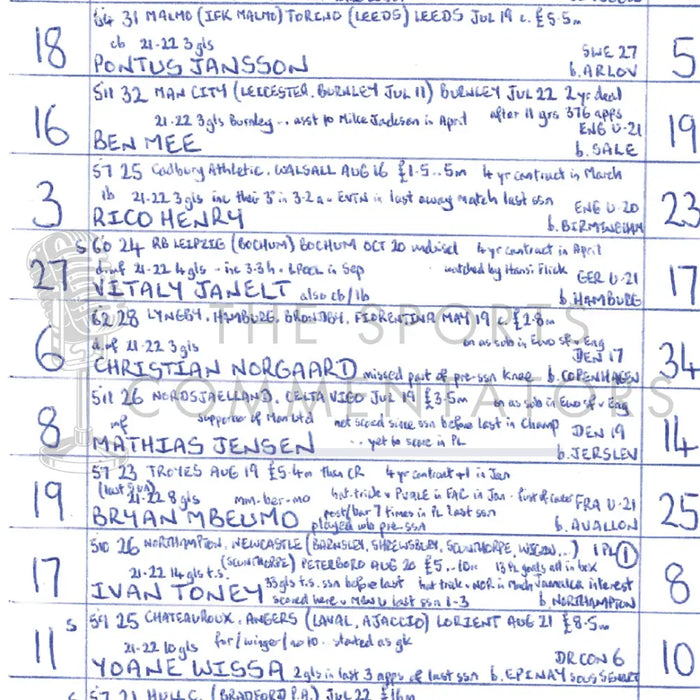 64 31 MALMO (IFK MALMO) TORINO (LEEDS) LEEDS JUL 19 c. £5.5m
18 cb 21-22 3 gls SWE 27 5
PONTUS JANSSON b. ARLOV
5 11 32 MAN CITY (LEICESTER, BURNLEY JUL 11) BURNLEY JUL 22 2 yr deal
16 21-22 3 gls Burnley .. asst to Mike Jackson in April after 11 yrs 376 apps 19
BEN MEE ENG U-21 b. SALE
57 25 Cadbury Athletic. WALSALL AUG 16 £1.5..5m 4 yr contract in March
3 lb 21-22 3 gls inc their 3rd in 3-2 a v EVTN in last away match last ssn ENG U-20 23
RICO HENRY b. BIRMINGHAM
S 60 24 RB LEIPZIG (BOCHUM) BOCHUM OCT 20 undiscl 4 yr contract in April
27 d.mf 21-22 4 gls - inc 3-3 h v LPOOL in Sep watched by Hansi Flick GER U-21 17
VITALY JANELT also cb/lb b. HAMBURG
62 28 LYNGBY, HAMBURG, BRONDBY, FIORENTINA MAY 19 c. £2.8m
6 d.mf 21-22 3 gls on as sub in Euro sf v Eng DEN 17 34
CHRISTIAN NORGAARD missed part of pre-ssn knee b. COPENHAGEN
5 11 26 NORDSJAELLAND, CELTA VIGO JUL 19 £3.5m on as sub in Euro sf v Eng
8 mf supporter of Man Utd not scored since ssn before last in Champ DEN 19 14
MATHIAS JENSEN .. yet to score in PL b. JERSLEV
57 23 TROYES AUG 19 £5.4m then CR 4 yr contract +1 in Jan
19 (last SUN) 21-22 8 gls mm-ber-mo hat-trick v PVALE in FAC in Jan - first of career FRA U-21 25
BRYAN MBEUMO post/bar 7 times in PL last ssn played wb pre-ssn b. AVALLON
5 10 26 NORTHAMPTON, NEWCASTLE (BARNSLEY, SHREWSBURY, SCUNTHORPE, WIGAN...) 1 PL 1
17 21-22 14 gls t.s. (SCUNTHORPE) PETERBORO AUG 20 £5..10m 13 PL goals all in box 8
IVAN TONEY 33 gls t.s. ssn before last hat trick v NOR in March Jamaica interest
scored here v MANU last ssn 1-3 b. NORTHAMPTON
S 59 25 CHATEAUROUX, ANGERS (LAVAL, AJACCIO) LORIENT AUG 21 £8.5m
11 21-22 10 gls for/winger/no 10.. started as gk DR CON 6 10
YOANE WISSA 2 gls in last 3 apps of last ssn b. EPINAY SOUS SENART
57 21 HULL C. (BRADFORD P.A.) JUL 22 £16m
THE SPORTS
COMMENTATORS